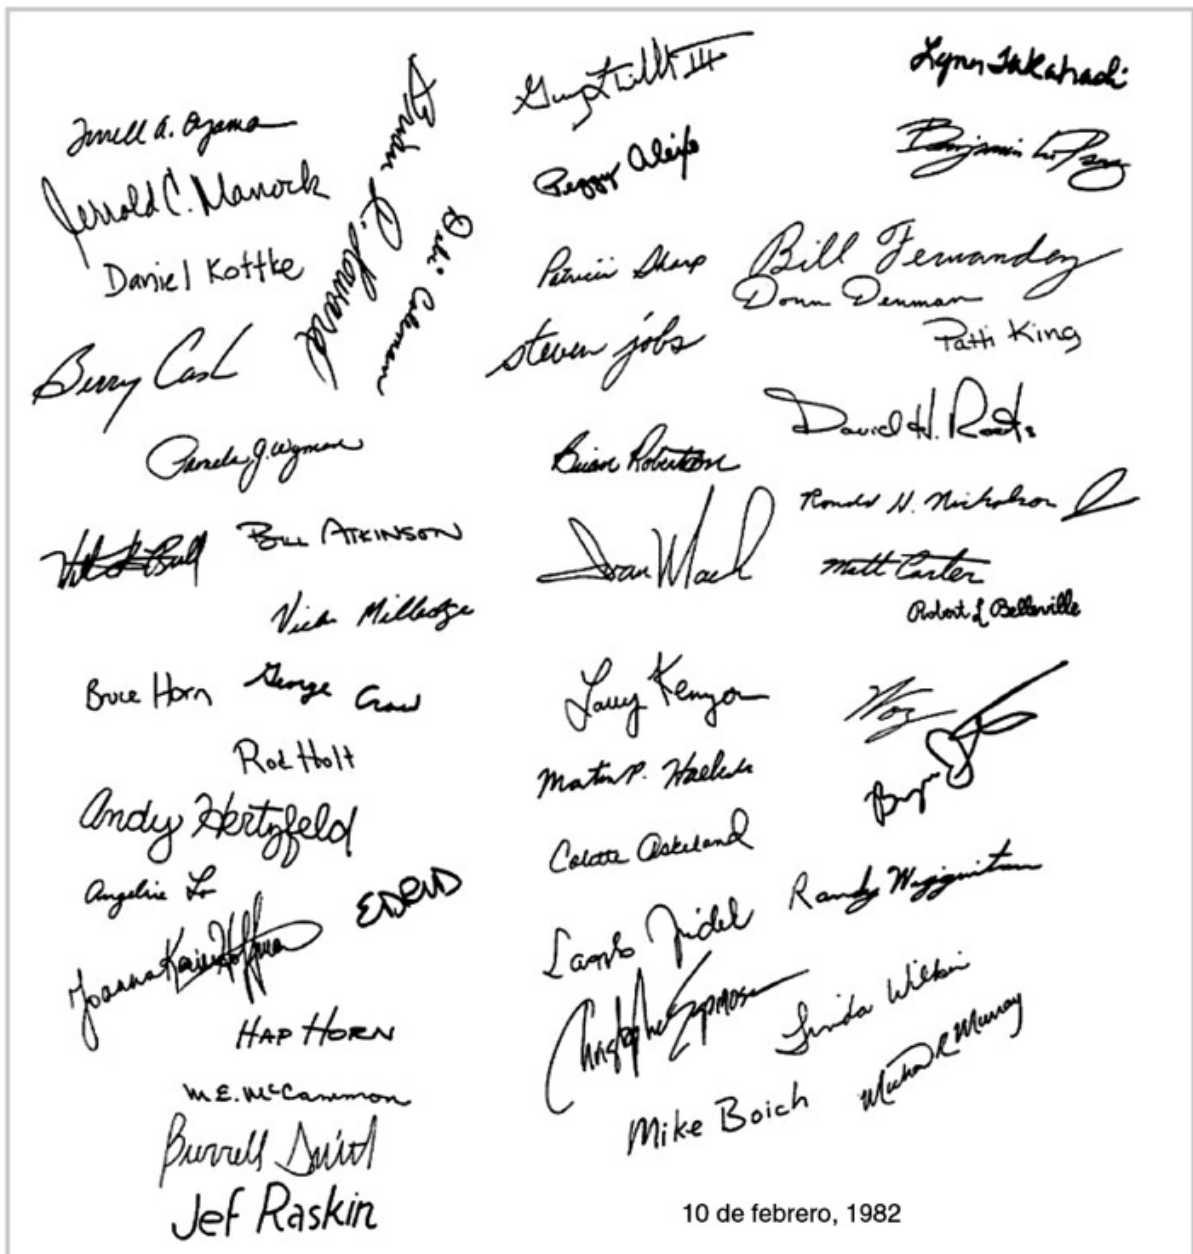 Terrell A. Oyama
Jerrold C. Manock
Daniel Kottke
Brian R. Howard
Debi Coleman
Berry Cash
Pamela J. Wyman
Bill Atkinson
Vicki Milledge
Bruce Horn
George Crow
Rod Holt
Andy Hertzfeld
Angeline Lo
Joanna Karin Hoffman
Hap Horn
M.E. McCammon
Burrell Smith
Jef Raskin
III
Peggy Alexio
Patricia Sharp
steven jobs
Brian Robertson
Ivan Mach
Larry Kenyon
Martin P. Haeberli
Colette Askeland
Christopher Espinosa
Mike Boich
Lynn Takahashi
Benjamin
Bill Fernandez
Donn Denman
Patti King
David H. Roots
Ronald H. Nicholson
Matt Carter
Robert L Belleville
Woz
Bryan
Randy Wigginton
Linda Wilkin
Michael R Murray
10 de febrero, 1982